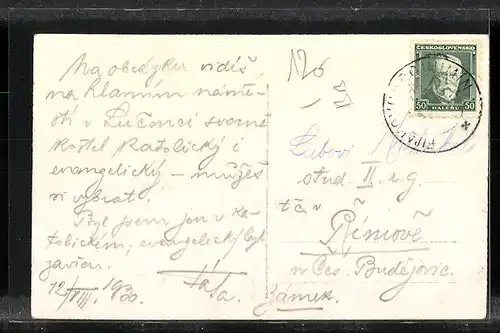 Na obrázku vidíš
na hlavním námě-
stí v Lučenci svorně
kostel katolický i
evangelický – můžeš
si vybrat.
Byl jsem jen v ka-
tolickém, evangelický byl
zavřen.
12/VIII. 1930. Táta.
ČESKOSLOVENSKO
50 HALÉŘŮ 50
FIĽAKOVO
Libovi
stud. II. r. g.
t. č. v
Římově
u Čes. Budějovic.
Zámek.